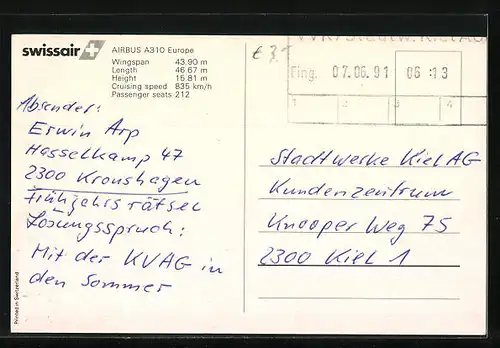 swissair AIRBUS A310 Europe
Wingspan 43.90 m
Length 46.67 m
Height 15.81 m
Cruising speed 835 km/h
Passenger seats 212
€ 3.-
Eing. 07.06.91 06:13
1 2 3 4
Absender:
Erwin Arp
Hasselkamp 47
2300 Kronshagen
Frühjahrs rätsel
Lösungsspruch:
Mit der KVAG in
den Sommer
Stadtwerke Kiel AG
Kundenzentrum
Knooper Weg 75
2300 Kiel 1
Printed in Switzerland